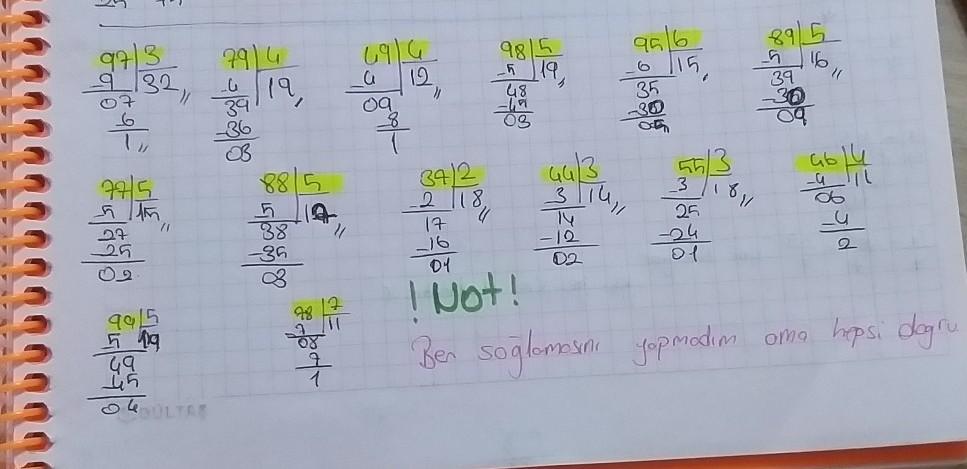 97 3
-9 32,,
07
6
1,,
79 4
-4 19,
39
-36
03
49 4
-4 12,
09
8
1
98 5
-5 19,,
48
-45
03
95 6
-6 15,
35
-30
05
89 5
-5 16,,
39
-30
09
77 5
-5 15,,
27
-25
02
88 5
5 17,,
38
-35
03
37 2
-2 18,,
17
-16
01
44 3
-3 14,,
14
-12
02
55 3
-3 18,,
25
-24
01
46 4
-4 11
06
-4
2
99 5
5 19
49
-45
04
78 7
-7 11
08
7
1
! Not !
Ben sağlamasını yapmadım ama hepsi doğru